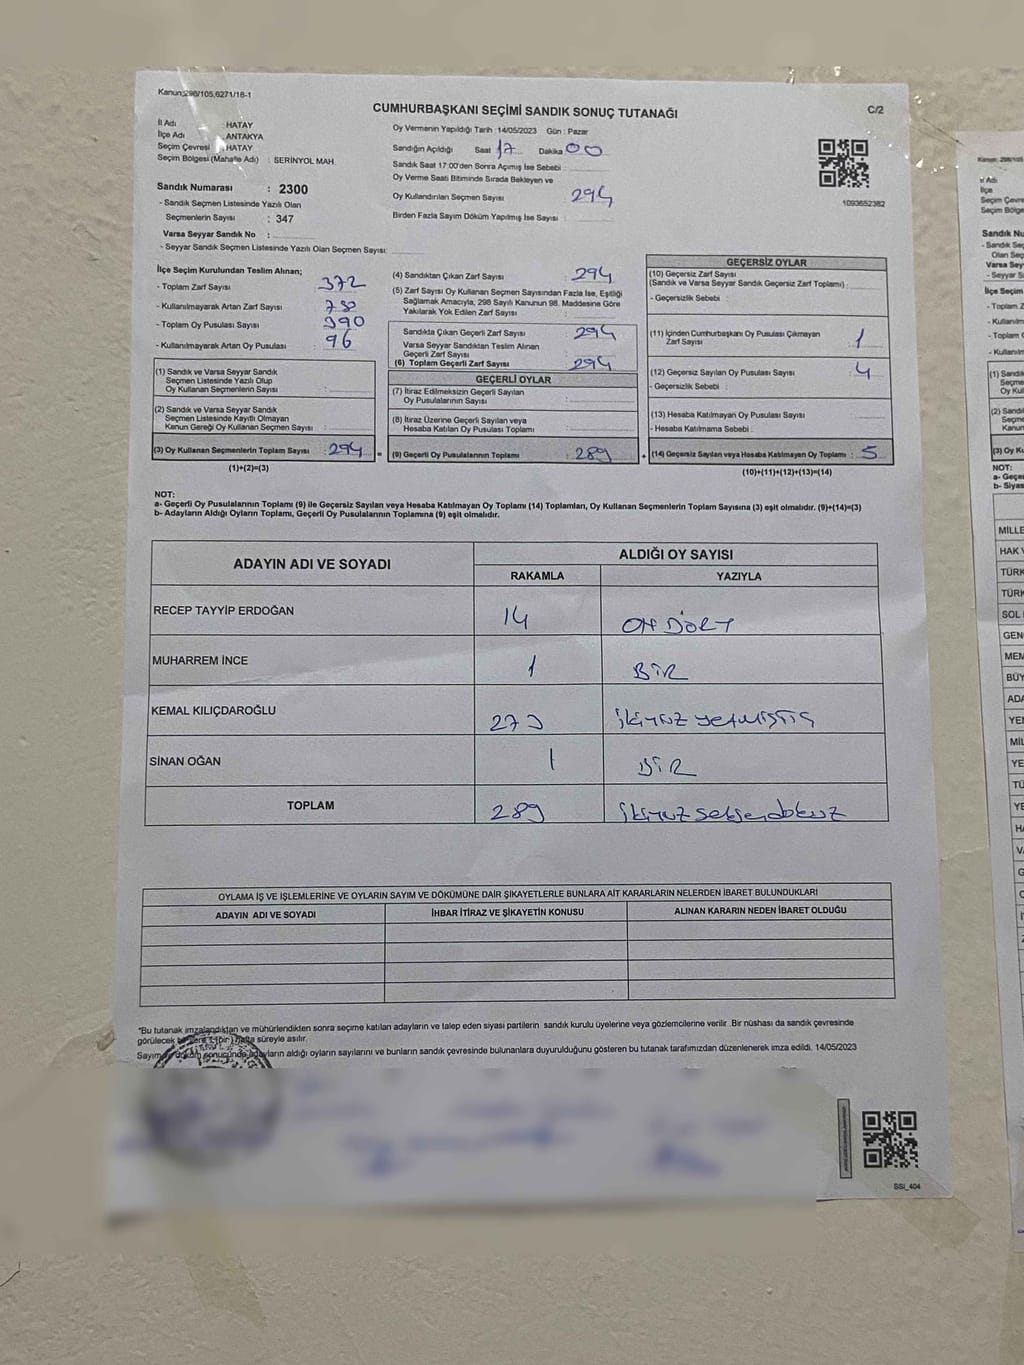 Kanun:298/105,6271/18-1
CUMHURBAŞKANI SEÇİMİ SANDIK SONUÇ TUTANAĞI
C/2
İl Adı HATAY
İlçe Adı ANTAKYA
Seçim Çevresi HATAY
Seçim Bölgesi (Mahalle Adı) : SERİNYOL MAH.
Sandık Numarası : 2300
- Sandık Seçmen Listesinde Yazılı Olan
Seçmenlerin Sayısı : 347
Varsa Seyyar Sandık No :
- Seyyar Sandık Seçmen Listesinde Yazılı Olan Seçmen Sayısı:
Oy Vermenin Yapıldığı Tarih :14/05/2023 Gün : Pazar
Sandığın Açıldığı Saat 17 Dakika 00
Sandık Saat 17:00'den Sonra Açımış İse Sebebi :
Oy Verme Saati Bitiminde Sırada Bekleyen ve
Oy Kullandırılan Seçmen Sayısı 294
Birden Fazla Sayım Döküm Yapılmış İse Sayısı :
1093652382
İlçe Seçim Kurulundan Teslim Alınan;
- Toplam Zarf Sayısı 372
- Kullanılmayarak Artan Zarf Sayısı
- Toplam Oy Pusulası Sayısı 390
- Kullanılmayarak Artan Oy Pusulası 96
(1) Sandık ve Varsa Seyyar Sandık
Seçmen Listesinde Yazılı Olup
Oy Kullanan Seçmenlerin Sayısı :
(2) Sandık ve Varsa Seyyar Sandık
Seçmen Listesinde Kayıtlı Olmayan
Kanun Gereği Oy Kullanan Seçmen Sayısı :
(3) Oy Kullanan Seçmenlerin Toplam Sayısı : 294 =
(1)+(2)=(3)
(4) Sandıktan Çıkan Zarf Sayısı : 294
(5) Zarf Sayısı Oy Kullanan Seçmen Sayısından Fazla İse, Eşitliği
Sağlamak Amacıyla, 298 Sayılı Kanunun 98. Maddesine Göre
Yakılarak Yok Edilen Zarf Sayısı :
Sandıkta Çıkan Geçerli Zarf Sayısı : 294
Varsa Seyyar Sandıktan Teslim Alınan
Geçerli Zarf Sayısı :
(6) Toplam Geçerli Zarf Sayısı : 294
GEÇERLİ OYLAR
(7) İtiraz Edilmeksizin Geçerli Sayılan
Oy Pusulalarının Sayısı :
(8) İtiraz Üzerine Geçerli Sayılan veya
Hesaba Katılan Oy Pusulası Toplamı :
(9) Geçerli Oy Pusulalarının Toplamı : 289 +
GEÇERSİZ OYLAR
(10) Geçersiz Zarf Sayısı
(Sandık ve Varsa Seyyar Sandık Geçersiz Zarf Toplamı) :
- Geçersizlik Sebebi :
(11) İçinden Cumhurbaşkanı Oy Pusulası Çıkmayan
Zarf Sayısı : 1
(12) Geçersiz Sayılan Oy Pusulası Sayısı : 4
- Geçersizlik Sebebi :
(13) Hesaba Katılmayan Oy Pusulası Sayısı :
- Hesaba Katılmama Sebebi :
(14) Geçersiz Sayılan veya Hesaba Katılmayan Oy Toplamı : 5
(10)+(11)+(12)+(13)=(14)
NOT:
a- Geçerli Oy Pusulalarının Toplamı (9) ile Geçersiz Sayılan veya Hesaba Katılmayan Oy Toplamı (14) Toplamları, Oy Kullanan Seçmenlerin Toplam Sayısına (3) eşit olmalıdır. (9)+(14)=(3)
b- Adayların Aldığı Oyların Toplamı, Geçerli Oy Pusulalarının Toplamına (9) eşit olmalıdır.
ADAYIN ADI VE SOYADI
ALDIĞI OY SAYISI
RAKAMLA YAZIYLA
RECEP TAYYİP ERDOĞAN 14 ON DÖRT
MUHARREM İNCE 1 BİR
KEMAL KILIÇDAROĞLU 273 ikiyüz yetmişüç
SİNAN OĞAN 1 BİR
TOPLAM 289 ikiyüz seksendokuz
OYLAMA İŞ VE İŞLEMLERİNE VE OYLARIN SAYIM VE DÖKÜMÜNE DAİR ŞİKAYETLERLE BUNLARA AİT KARARLARIN NELERDEN İBARET BULUNDUKLARI
ADAYIN ADI VE SOYADI İHBAR İTİRAZ VE ŞİKAYETİN KONUSU ALINAN KARARIN NEDEN İBARET OLDUĞU
*Bu tutanak imzalandıktan ve mühürlendikten sonra seçime katılan adayların ve talep eden siyasi partilerin sandık kurulu üyelerine veya gözlemcilerine verilir .Bir nüshası da sandık çevresinde
görülecek bir yere 1 (bir) hafta süreyle asılır.
Sayım ve döküm sonucunda adayların aldığı oyların sayılarını ve bunların sandık çevresinde bulunanlara duyurulduğunu gösteren bu tutanak tarafımızdan düzenlenerek imza edildi. 14/05/2023
SSI_404